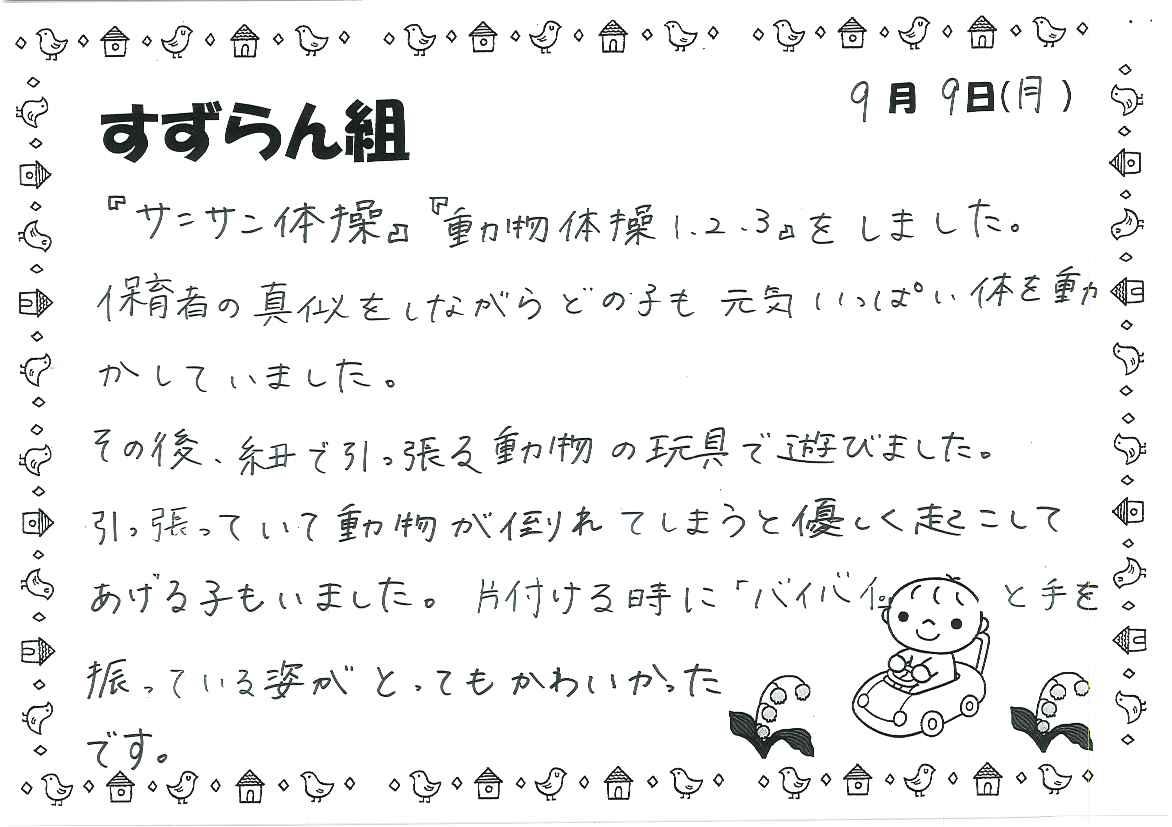 9月9日(月)
すずらん組
『サンサン体操』『動物体操1.2.3』をしました。
保育者の真似をしながらどの子も元気いっぱい体を動
かしていました。
その後、紐で引っ張る動物の玩具で遊びました。
引っ張っていて動物が倒れてしまうと優しく起こして
あげる子もいました。片付ける時に「バイバイ。 と手を
振っている姿がとってもかわいかった
です。